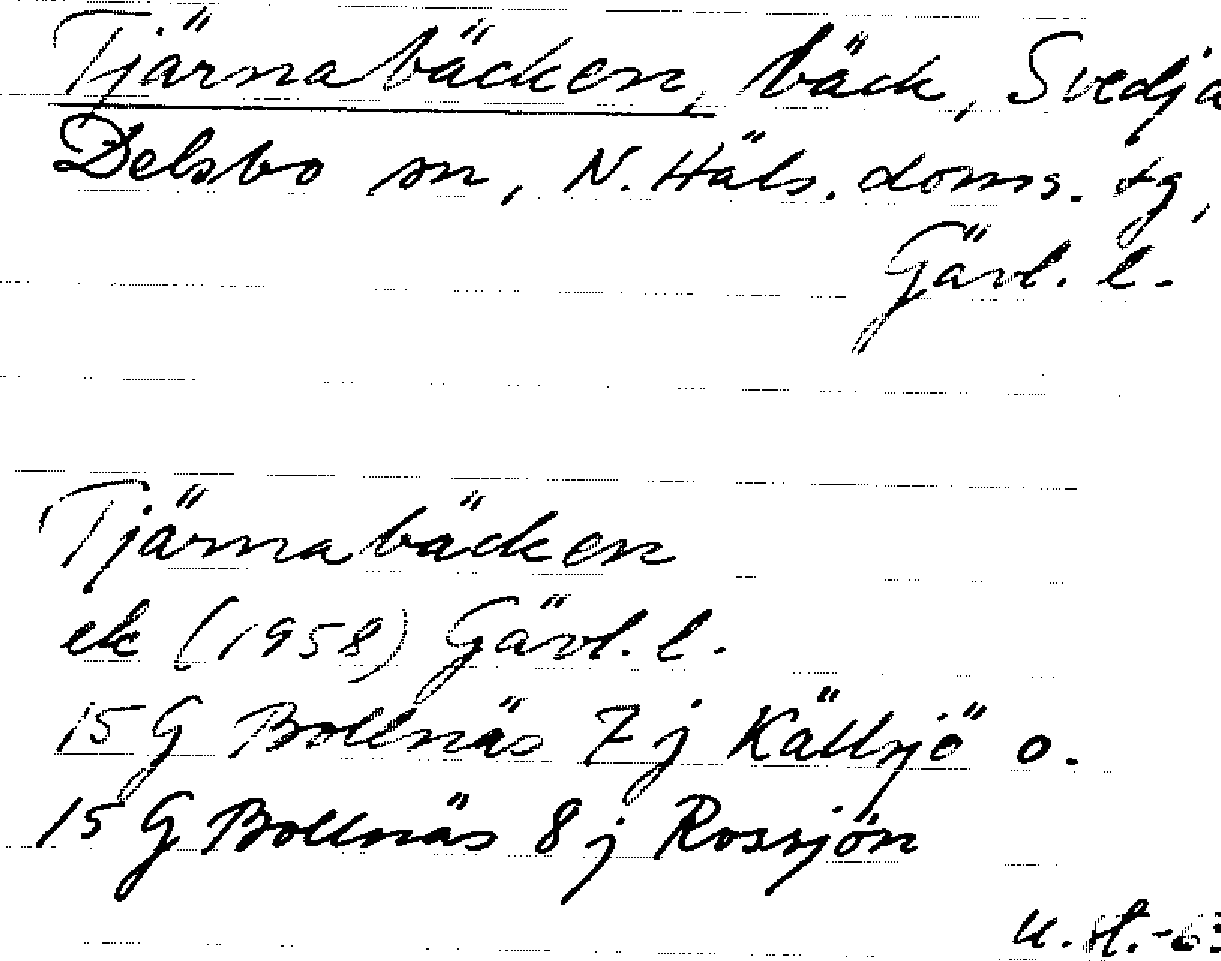 Tjärnabäcken, bäck, Svedja
Delsbo sn, N. Häls. doms. tg,
Gävl. l.
Tjärnabäcken
ek (1958) Gävl. l.
15 G Bollnäs 7 j Källsjö o.
15 G Bollnäs 8 j Rossjön